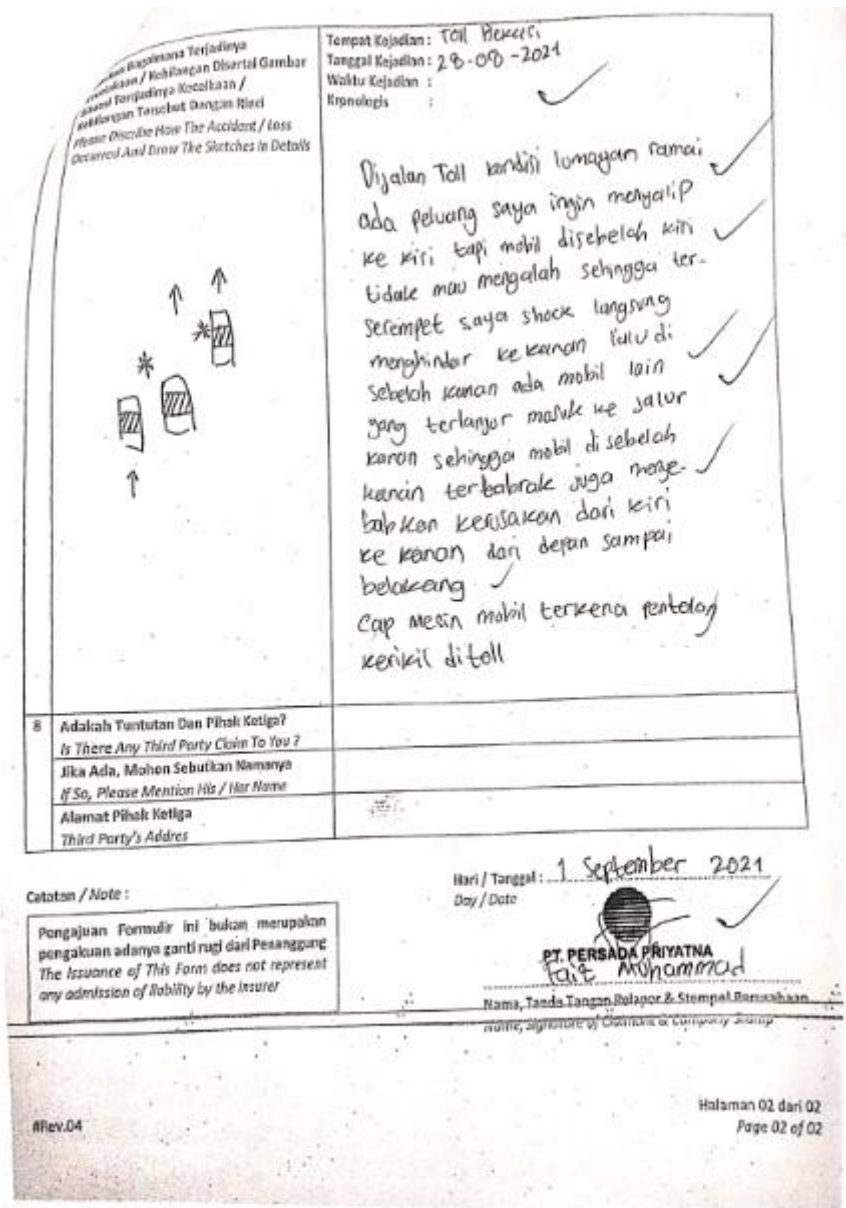 Bagaimana Terjadinya
/ Kehilangan Disertai Gambar
Terjadinya Kecelkaan /
Kehilangan Tersebut Dengan Rinci
Please Discribe How The Accident / Loss
Occurred And Draw The Sketches In Details
Tempat Kejadian : Toll Bekasi
Tanggal Kejadian : 28-08-2021
Waktu Kejadian :
Kronologis :
Dijalan Toll kondisi lumayan ramai
ada peluang saya ingin menyalip
ke kiri tapi mobil disebelah kiri
tidak mau mengalah sehingga ter-
serempet saya shock langsung
menghindar ke kanan lalu di
sebelah kanan ada mobil lain
yang terlanjur masuk ke jalur
kanan sehingga mobil disebelah
kanan tertabrak juga menye-
babkan kerusakan dari kiri
ke kanan dan depan sampai
belakang
Cap mesin mobil terkena pentalan
kerikil ditoll
8 Adakah Tuntutan Dan Pihak Ketiga?
Is There Any Third Party Claim To You ?
Jika Ada, Mohon Sebutkan Namanya
If So, Please Mention His / Her Name
Alamat Pihak Ketiga
Third Party's Addres
Catatan / Note :
Pengajuan Formulir ini bukan merupakan
pengakuan adanya ganti rugi dari Penanggung
The Issuance of This Form does not represent
any admission of liability by the insurer
Hari / Tanggal : 1 September 2021
Day / Date
PT. PERSADA PRIYATNA
Faiz Mohammad
Nama, Tanda Tangan Pelapor & Stempel Perusahaan
Name, Signature of Claimant & Company Stamp
#Rev.04
Halaman 02 dari 02
Page 02 of 02